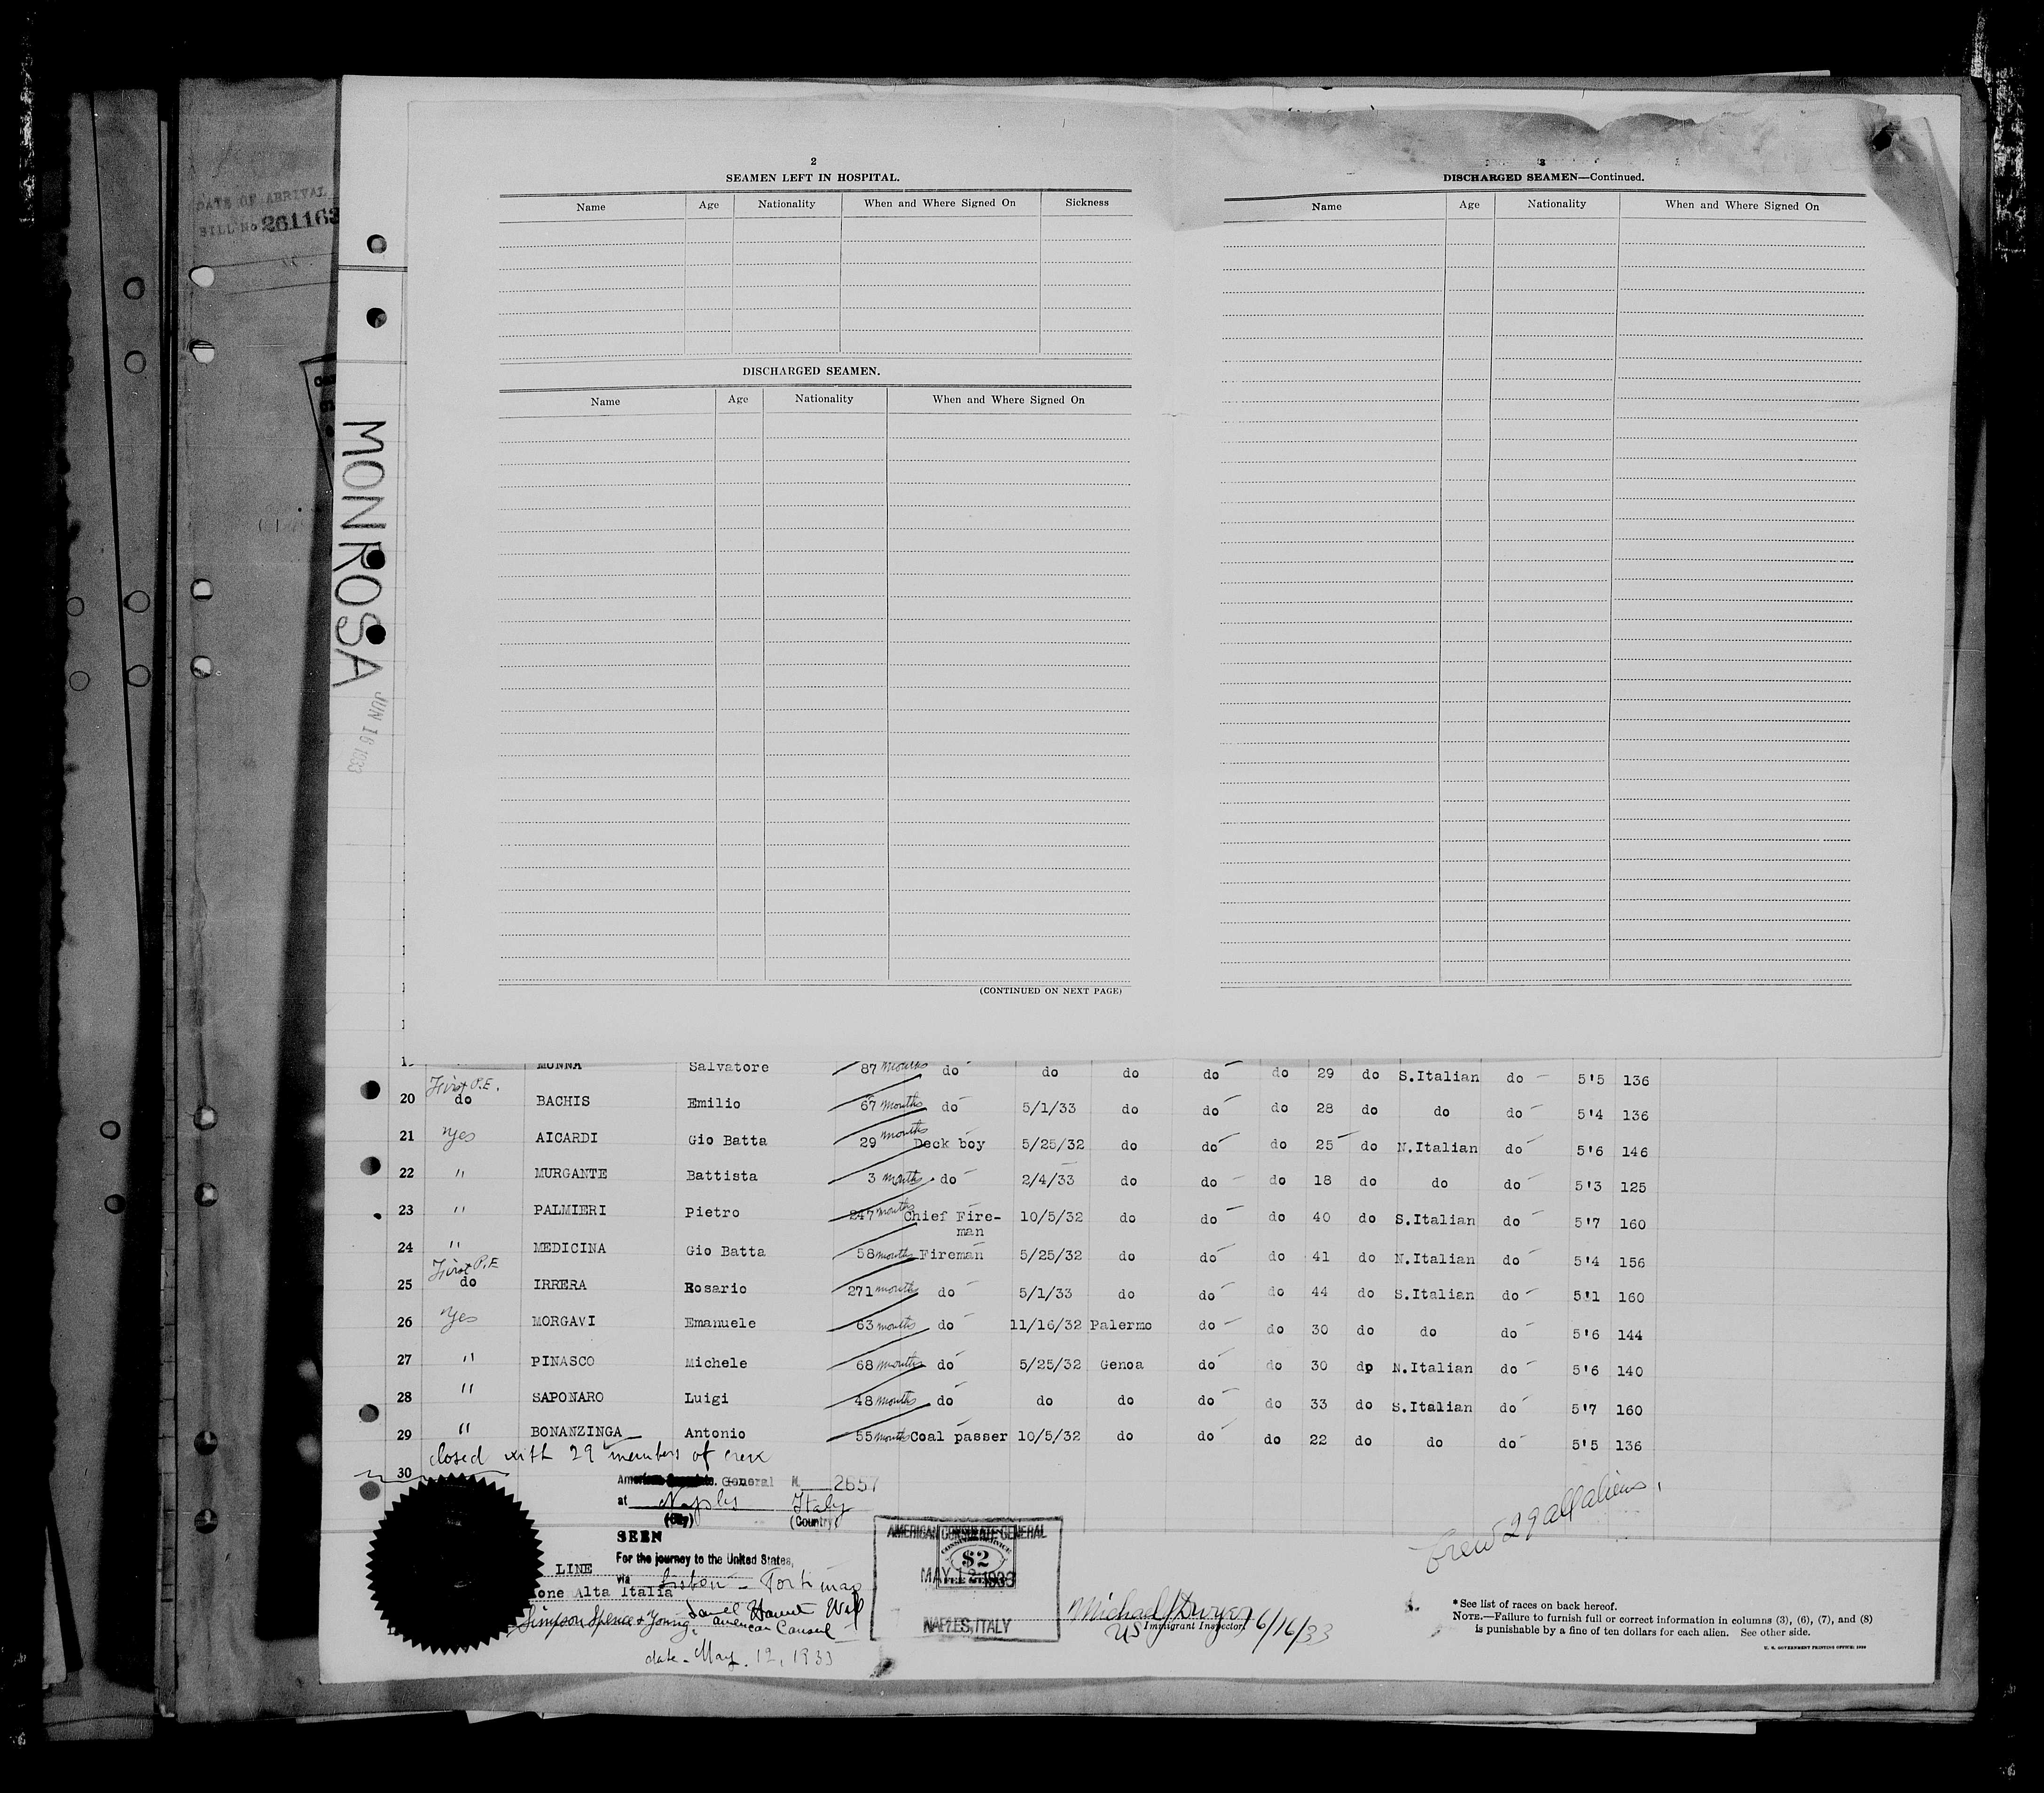 DATE OF ARRIVAL
BILL No 261163
MONROSA
JUN 16 1933
2
SEAMEN LEFT IN HOSPITAL.
Name Age Nationality When and Where Signed On Sickness
DISCHARGED SEAMEN.
Name Age Nationality When and Where Signed On
(CONTINUED ON NEXT PAGE)
3
DISCHARGED SEAMEN—Continued.
Name Age Nationality When and Where Signed On
MUNNA Salvatore 87 months do do do do do 29 do S.Italian do 5'5 136
First P.E.
20 do BACHIS Emilio 67 months do 5/1/33 do do do 28 do do do 5'4 136
21 yes AICARDI Gio Batta 29 months Deck boy 5/25/32 do do do 25 do N.Italian do 5'6 146
22 " MURGANTE Battista 3 month do 2/4/33 do do do 18 do do do 5'3 125
23 " PALMIERI Pietro 247 months Chief Fire- 10/5/32 do do do 40 do S.Italian do 5'7 160
man
24 " MEDICINA Gio Batta 58 months Fireman 5/25/32 do do do 41 do N.Italian do 5'4 156
First P.E
25 do IRRERA Rosario 271 months do 5/1/33 do do do 44 do S.Italian do 5'1 160
26 yes MORGAVI Emanuele 63 months do 11/16/32 Palermo do do 30 do do do 5'6 144
27 " PINASCO Michele 68 months do 5/25/32 Genoa do do 30 dp N.Italian do 5'6 140
28 " SAPONARO Luigi 48 months do do do do do 33 do S.Italian do 5'7 160
29 " BONANZINGA Antonio 55 months Coal passer 10/5/32 do do do 22 do do do 5'5 136
closed with 29 members of crew
30
General N. 2657
at Naples Italy
(City) (Country)
SEEN
For the journey to the United States,
via Lisbon - Portimao
LINE
one Alta Italia
Simpson Spence & Young.
American Consul
date - May. 12, 1933
AMERICAN CONSULATE GENERAL
CONSULAR SERVICE
$2
FEE STAMP
MAY 12 1933
NAPLES, ITALY
Michael J Dwyer 6/16/33
US Immigrant Inspector
Crew 29 all aliens.
* See list of races on back hereof.
NOTE.—Failure to furnish full or correct information in columns (3), (6), (7), and (8)
is punishable by a fine of ten dollars for each alien. See other side.
U. S. GOVERNMENT PRINTING OFFICE: